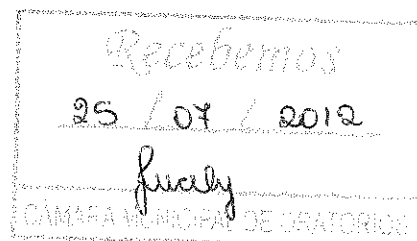 Recebemos
25 / 07 / 2012
CÂMARA MUNICIPAL DE ORATÓRIOS